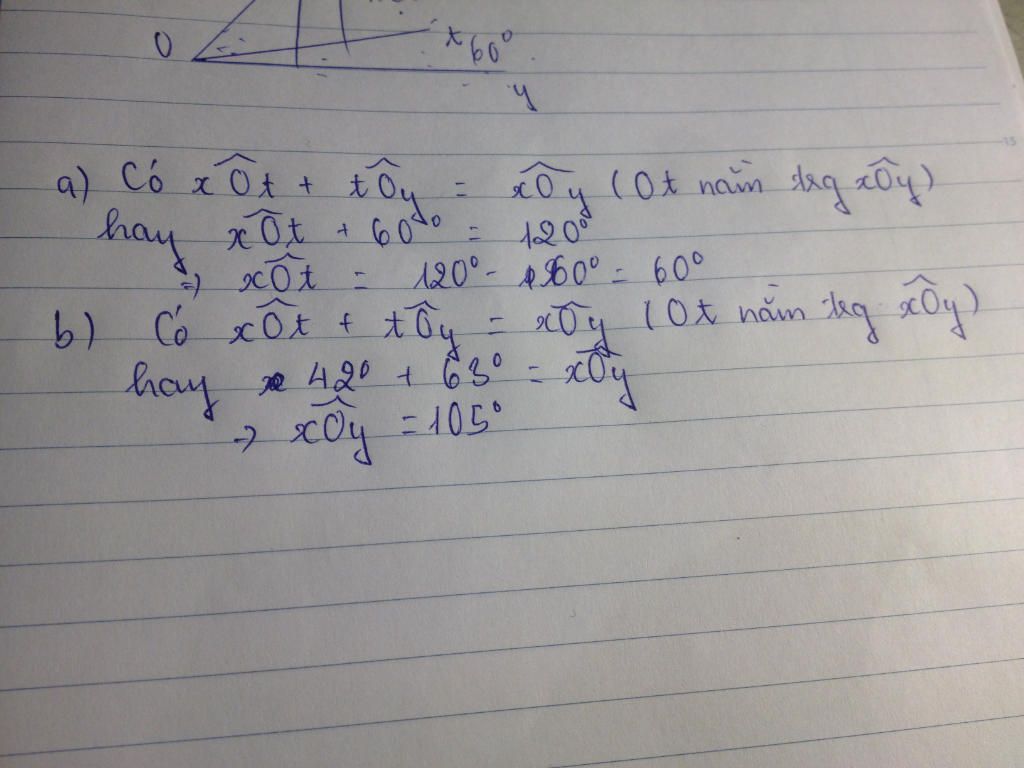 O
t
60°
y
a) Có xÔt + tÔy = xÔy (Ot nằm trg xÔy)
hay xÔt + 60° = 120°
=> xÔt = 120° - 60° = 60°
b) Có xÔt + tÔy = xÔy (Ot nằm trg xÔy)
hay 42° + 63° = xÔy
=> xÔy = 105°